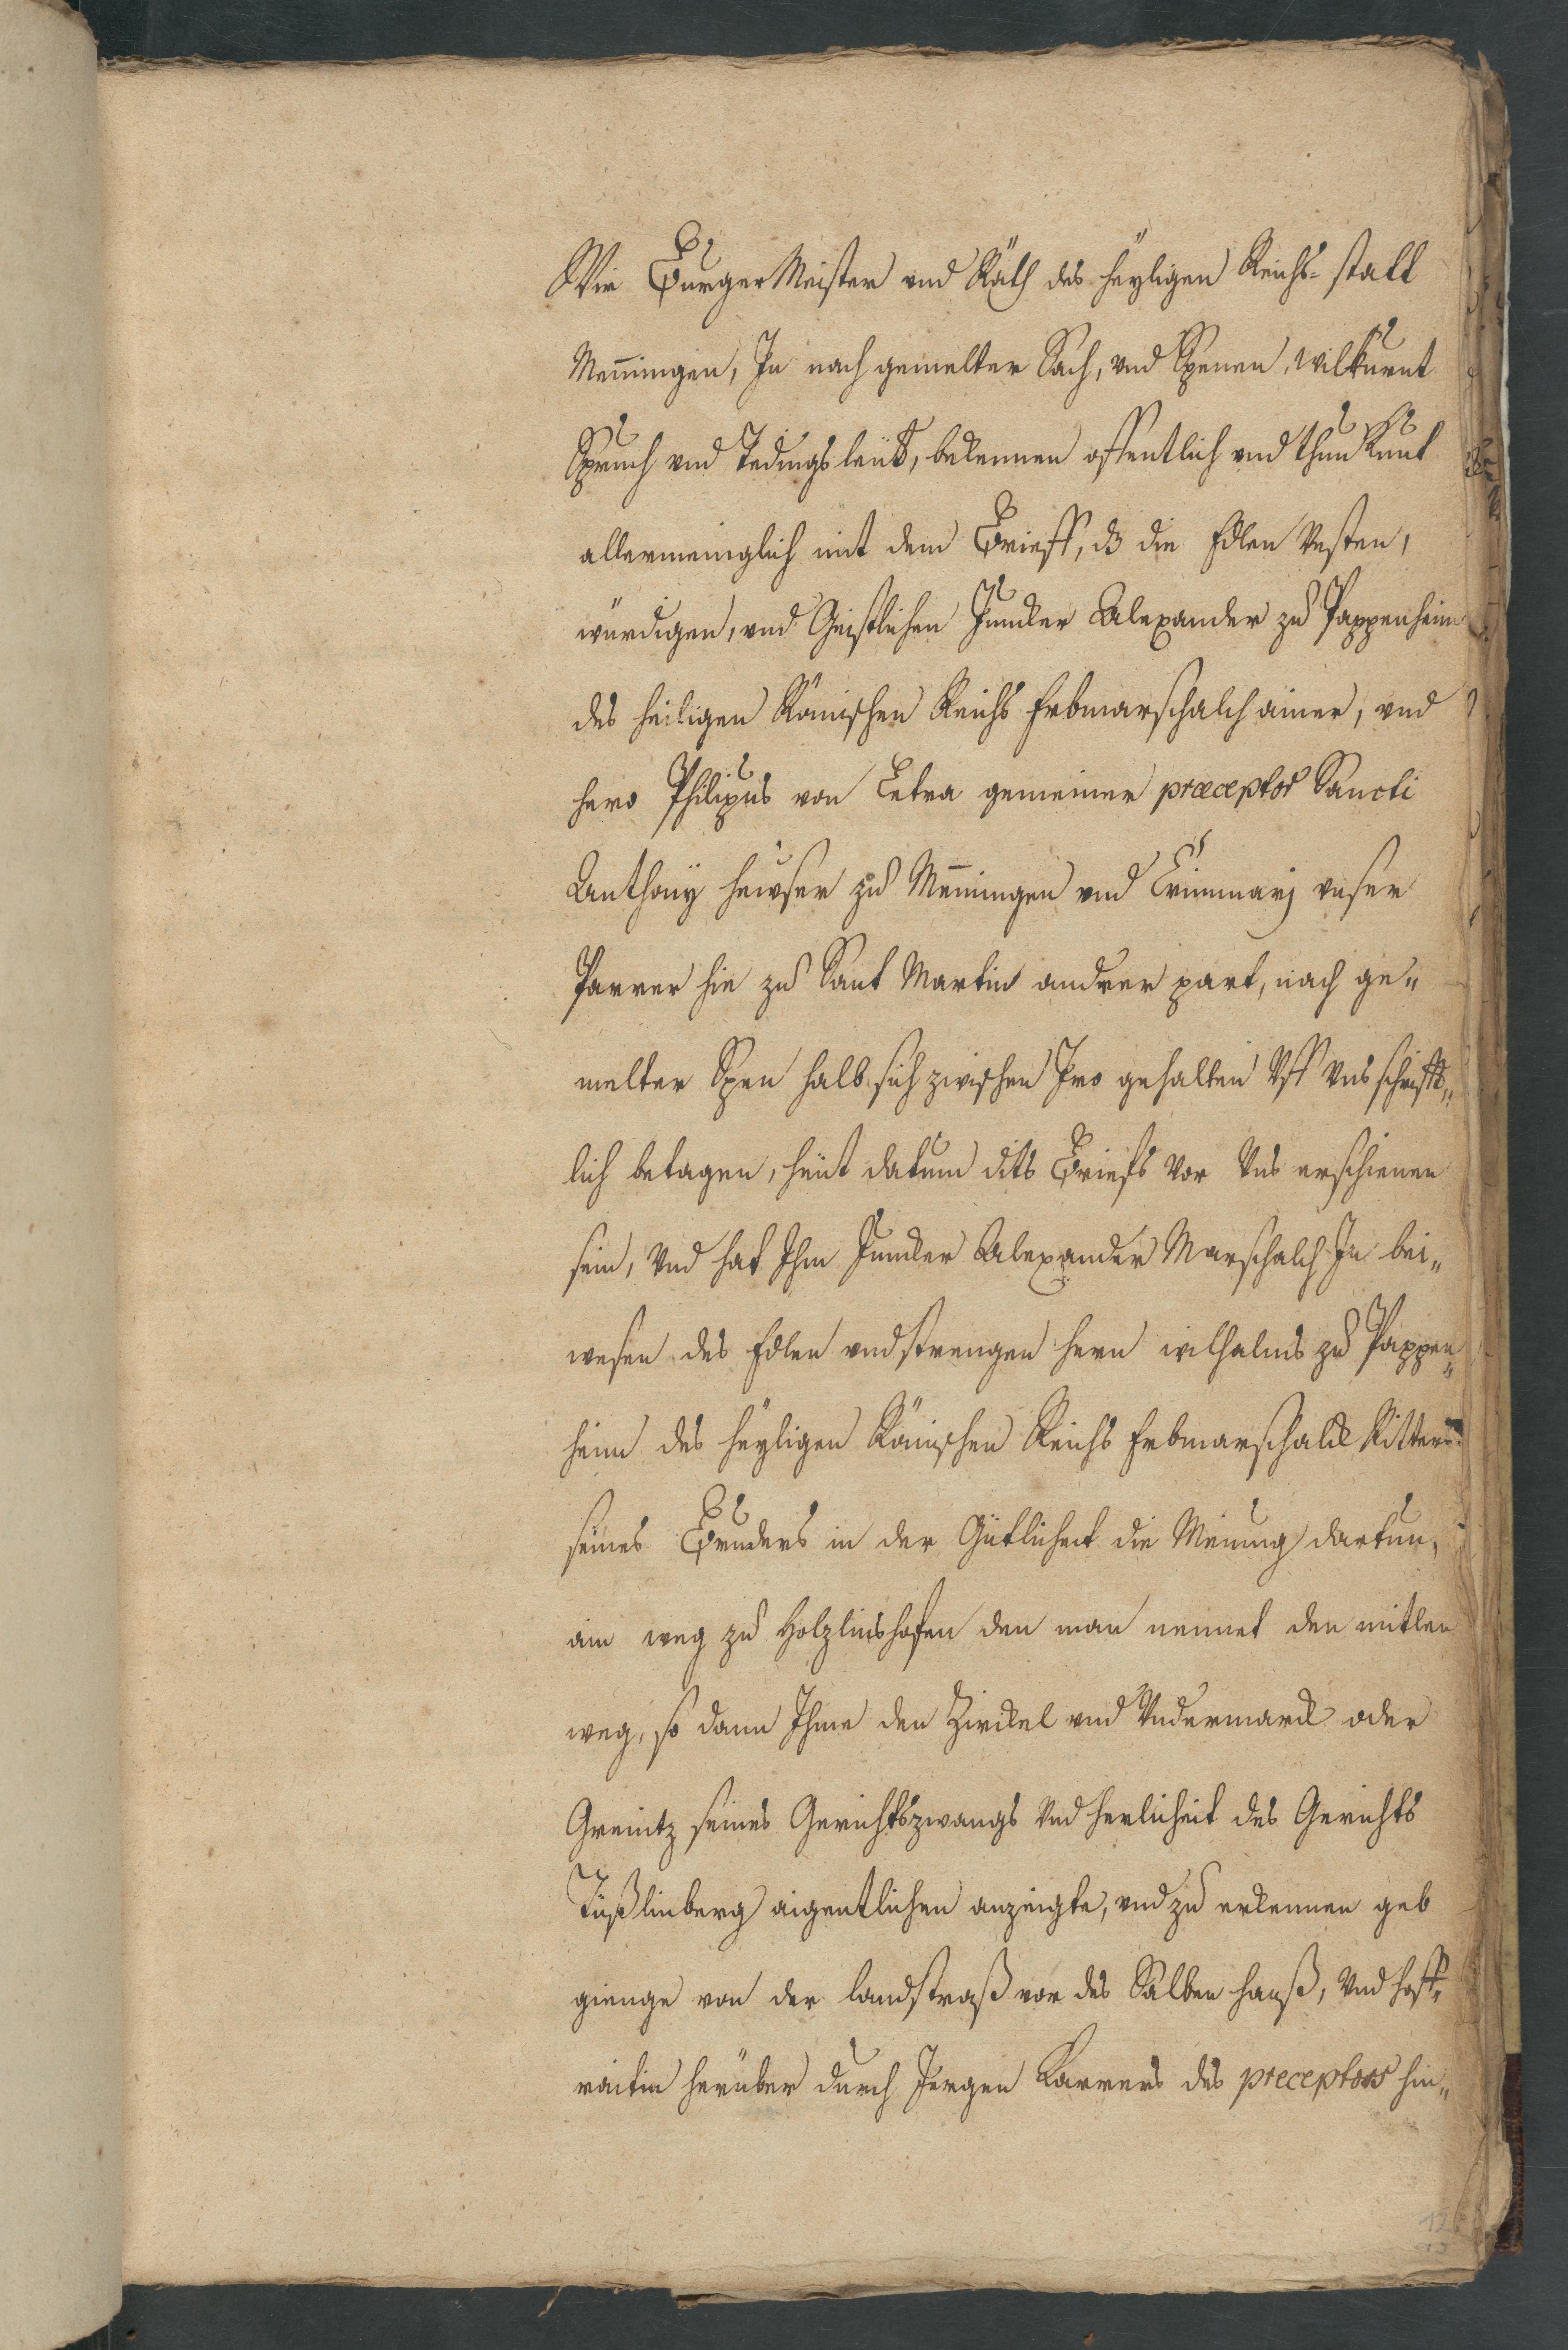 Wir Burger Meister vnd Räth des heÿligen Reichs-statt
Mem̄ingen, In nach gemelter Sach, vnd Spenen, wilkurnt
Spruch vnd Tedings leüt, bekennen offentlich vnd thun kunt
allermeniglich mit dem Brieff, dz die Edlen Vesten,
würdigen, vnd Geistlichen Juncker Alexander zu Pappenheim
des heiligen Römischen Reichs Erbmarschalch ainer, vnd
hero Philipus von Letra gemeiner præceptor Sancti
Anthonÿ heuser zu Mem̄ingen vnd vnser
Parrer hie zu Sant Martin andrer part, nach ge„
melter Spen halb sich zwischen Iro gehalten Vff Vns schrifft„
lich betagen, heüt datum dits Briefs vor Vns erschienen
sein, Vnd hat Ihm Juncker Alexander Marschalch In bei„
wesen des Edlen vnd strengen hern wilhalms zu Pappen„
heim des heÿligen Römischen Reichs Erbmarschalck Ritters
seines Bruders in der Gütlicheit die Meinung dartun,
ain weg zu Holzlinshofen den man nennet den mitlen
weg, so dann Ihme den Zirckel vnd Vndermarck oder
Greintz seines Gerichtszwangs Vnd herlicheit des Gerichts
Tüßlinberg aigentlichen anzeigte, vnd zu erkennen geb
gienge von der landstraß vor des Salben hauß, Vnd hoff„
raitin herüber durch Jergen Karrers des preceptors hin„
12